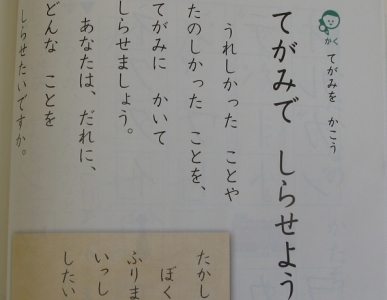 かく
てがみを かこう
てがみで しらせよう
うれしかった ことや
たのしかった ことを、
てがみに かいて
しらせましょう。
あなたは、だれに、
どんな ことを
しらせたいですか。
たかし
ぼく
ふりま
いっし
したい